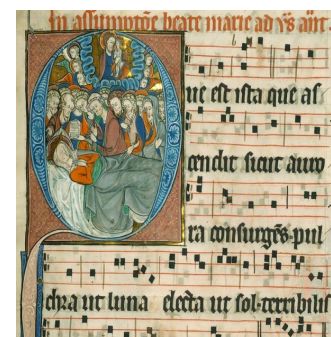 In assumptõe beate marie ad vs̄ añt
ue est ista que as
cendit sicut auro
ra consurgēs pul
chra ut luna electa ut sol terribilis